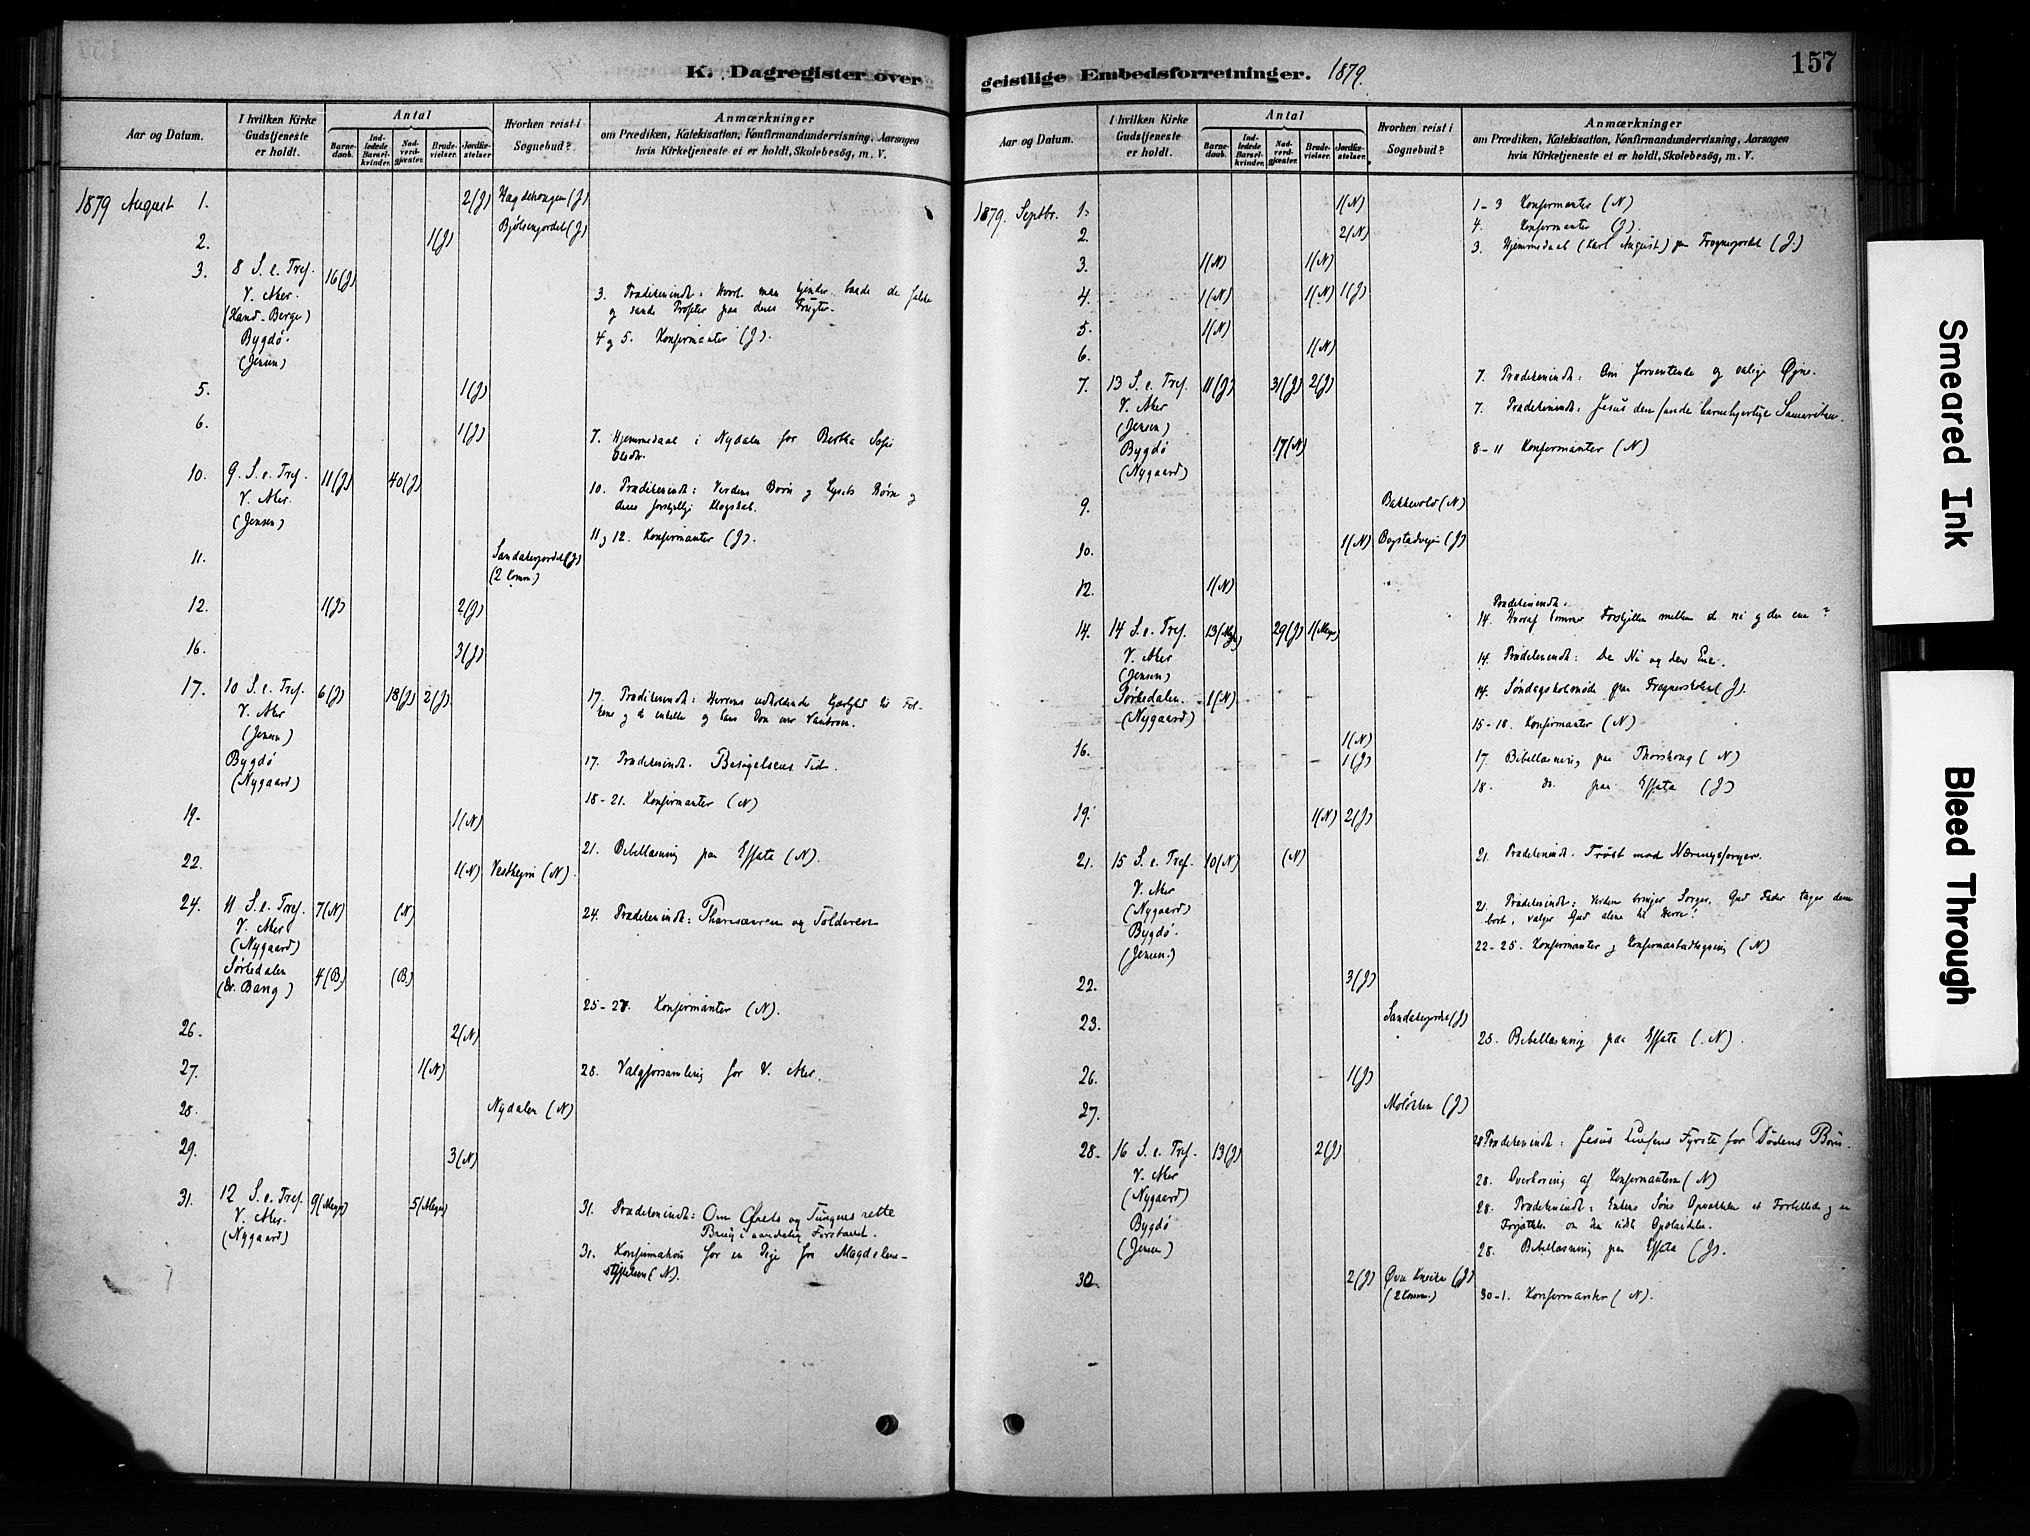 K. Dagregister over
Aar og Datum.
I hvilken Kirke Gudstjeneste er holdt.
Antal
Barnedaab.
Indledede Barselkvinder.
Nadverdgjæster.
Brudevielser.
Jordfæstelser.
Hvorhen reist i Sognebud?
Anmærkninger
om Prædiken, Katekisation, Konfirmandundervisning, Aarsagen
hvis Kirketjeneste ei er holdt, Skolebesög, m. V.
1879 August 1. 2(J) Hagdehougen (J)
2. 1(J) Bjölsenjordet (J)
3. 8 S. e. Tref. 16(J)
V. Aker.
Bygdö.
(Jensen)
3. Prædikenindh: Hvorl. man kjender baade de falske
og sande Profeter paa deres Frugter.
4 og 5. Konfirmanter (J).
5. 1(J)
6. 1(J)
7. Hjemmedaab i Nydalen for Bertha Sofie
10. 9. S. e. Tref. 11(J) 40(J)
V. Aker.
(Jensen)
10. Prædikenindh: Verdens Börn og Lysets Börn og
deres forskjellige Klogskab.
11 og 12. Konfirmanter (J).
11. Sandakerjordet (J)
(2 Komm.)
12. 1(J) 2(J)
16. 3(J)
17. 10 S. e. Tref. 6(J) 18(J) 2(J)
V. Aker
(Jensen)
Bygdö
(Nygaard)
17. Prædikenindh: Herrens udholdende Kjærlighed til Fol-
kene og de enkelte og hans Dom over Vantroen.
17. Prædikenindh. Besögelsens Tid.
18-21. Konfirmanter (N)
19. 1(N)
21. Bibellæsning paa Effata (N).
22. 1(N) Vestheim (N).
24. 11 S. e. Tref. 7(N) (N)
V. Aker
(Nygaard)
Sörkedalen 4(B) (B)
(Dr. Bang)
24. Prædikenindh: Pharisæeren og Tolderen
25-28. Konfirmanter (N).
26. 2(N)
27. 1(N)
28. Valgforsamling for V. Aker.
28. Nydalen (N)
29. 3(N)
31. 12 S. e. Tref. 9(Meyer) 5(Meyer)
V. Aker.
(Nygaard)
31. Prædikenindh: Om Örets og Tungens rette
Brug i aandelig Forstand.
31. Konfirmation for en Pige fra Magdalene-
stiftelsen (N).
geistlige Embedsforretninger. 1879.
157
Aar og Datum.
I hvilken Kirke Gudstjeneste er holdt.
Antal
Barnedaab.
Indledede Barselkvinder.
Nadverdgjæster.
Brudevielser.
Jordfæstelser.
Hvorhen reist i Sognebud?
Anmærkninger
om Prædiken, Katekisation, Konfirmandundervisning, Aarsagen
hvis Kirketjeneste ei er holdt, Skolebesög, m. V.
1879. Septbr. 1. 1(N)
1-3 Konfirmanter (N)
2. 2(N)
4. Konfirmanter (J).
3. Hjemmedaab (Karl August) paa Frognerjordet (J.)
3. 1(N) 1(N)
4. 1(N) 1(N) 1(J)
5. 1(N)
6. 1(N)
7. 13 S. e. Tref. 11(J) 31(J) 2(J)
V. Aker
(Jensen)
Bygdö 17(N)
(Nygaard)
7. Prædikenindh: Om forventende og salige Öjne.
7. Prædikenindh: Jesus den sande barmhjertige Samaritan.
8-11 Konfirmanter (N)
9. Bakkevold (N)
10. 1(N) Bogstadvejen (J)
12. 1(N)
14. 14 S. e. Tref. 13(Meyer) 29(J) 1(Meyer)
V. Aker
(Jensen)
Sörkedalen 1(N)
(Nygaard)
Prædikenindh:
14. Hvoraf kommer Forskjellen mellem de ni og den ene?
14. Prædikenindh: De Ni og den Ene.
14. Söndagsskolemöde paa Frognerskolen (J).
15-18. Konfirmanter (N)
16. 1(N)
1(J)
17. Bibellæsning paa Thorshoug (N)
18. do. paa Effata (J)
19. 1(N) 2(J)
21. 15 S. e. Tref. 10(N) (N)
V. Aker
(Nygaard)
Bygdö.
(Jensen.)
21. Prædikenindh. Tröst mod Næringssorger.
21. Prædikenindh: Verden bringer Sorger, Gud Fader tager dem
bort, vælger Gud alene til Herre!
22-25. Konfirmanter og (N)
22. 3(J)
23. Sandakerjordet (J)
25. Bibellæsning paa Effata (N).
26. 1(J)
27. Molökken (J)
28. 16 S. e. Tref. 13(J) 2(J)
V. Aker
(Nygaard)
Bygdö
(Jensen)
28. Prædikenindh: Jesus Livsens Fyrste for Dödens Börn.
28. Overhöring af Konfirmanterne (N)
28. Prædikenindh: Enkens Söns Opvækkelse et Forbillede og en
28. Bibellæsning paa Effata (J).
30. 2(J) (J)
(2 Komm.)
30-1. Konfirmanter (N).
Smeared Ink
Bleed Through